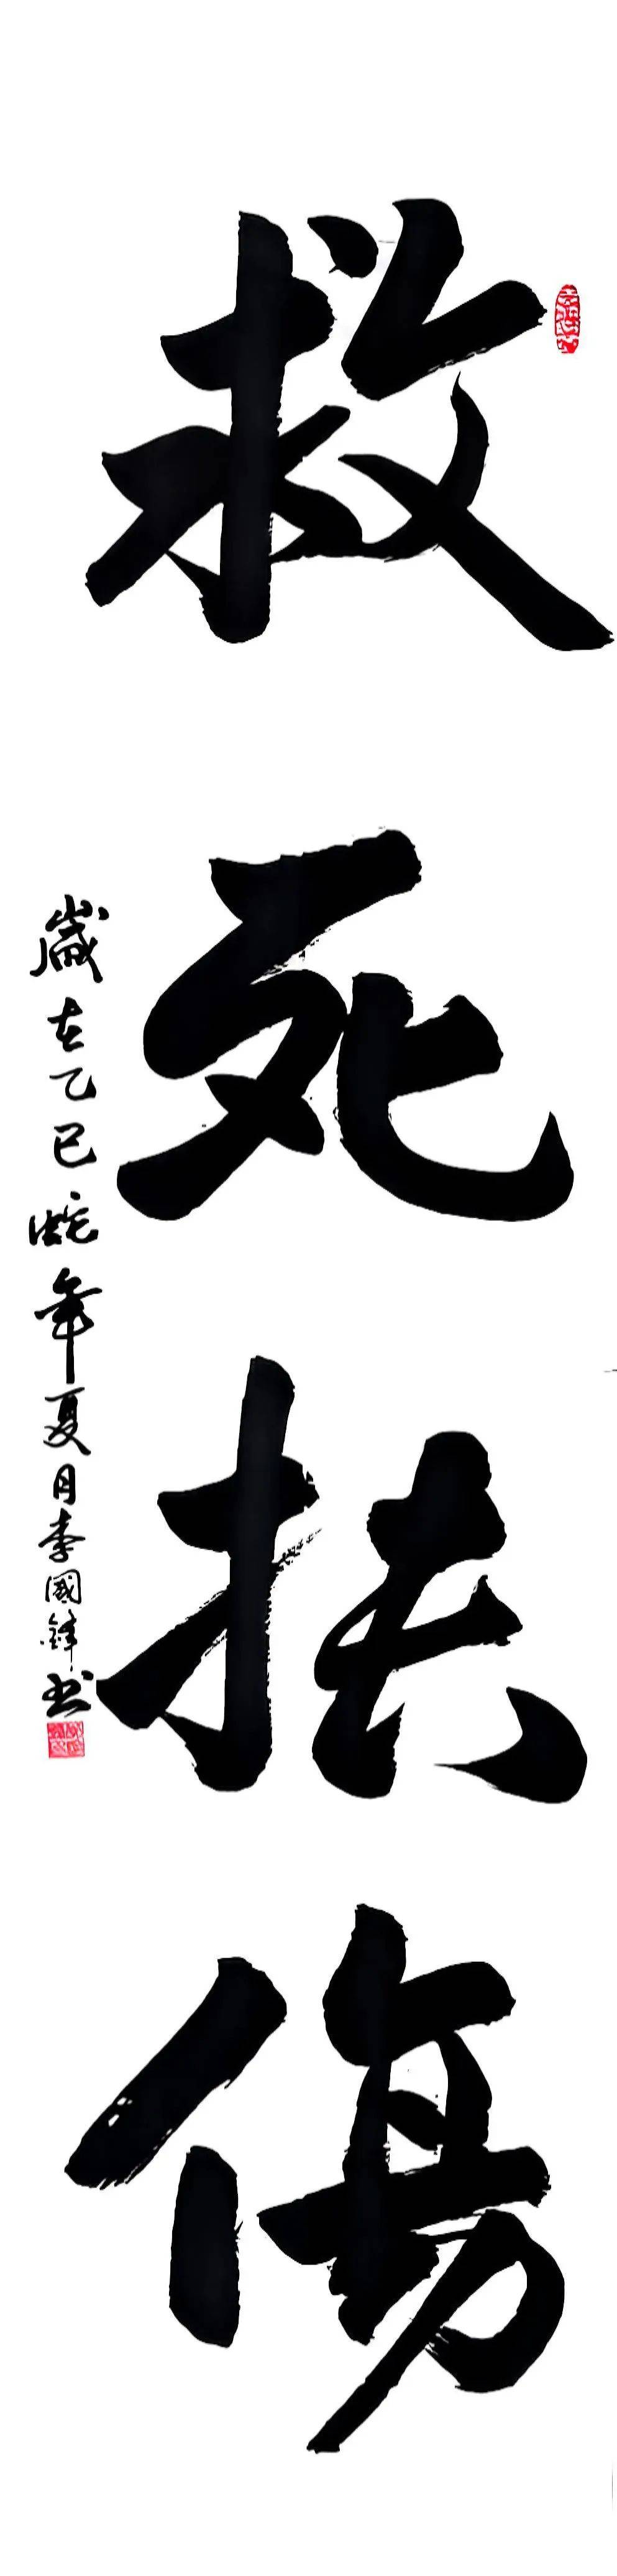 救死扶傷
歲在乙巳蛇年夏月李國鋒书